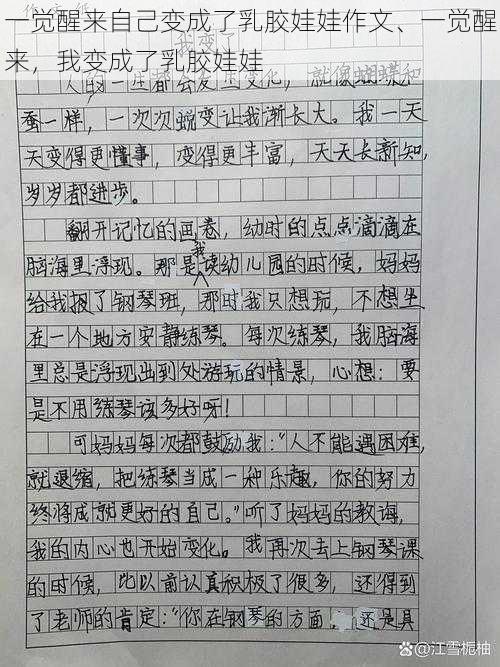 一觉醒来自己变成了乳胶娃娃作文、一觉醒
来，我变成了乳胶娃娃
我变了
人的一生都会发生变化，就像蝴蝶和
蚕一样，一次次蜕变让我渐长大。我一天
天变得更懂事，变得更丰富，天天长新知，
岁岁都进步。
翻开记忆的画卷，幼时的点点滴滴在
脑海里浮现。那是我读幼儿园的时候，妈妈
给我报了钢琴班，那时我只想玩，不想坐
在一个地方安静练琴。每次练琴，我脑海
里总是浮现出到处游玩的情景，心想：要
是不用练琴该多好呀！
可妈妈每次都鼓励我：“人不能遇困难，
就退缩，把练琴当成一种乐趣，你的努力
终将成就更好的自己。”听了妈妈的教诲，
我的内心也开始变化。我再次去上钢琴课
的时候，比以前认真积极了很多，还得到
了老师的肯定：“你在钢琴的方面，还是具
@江雪栀柚